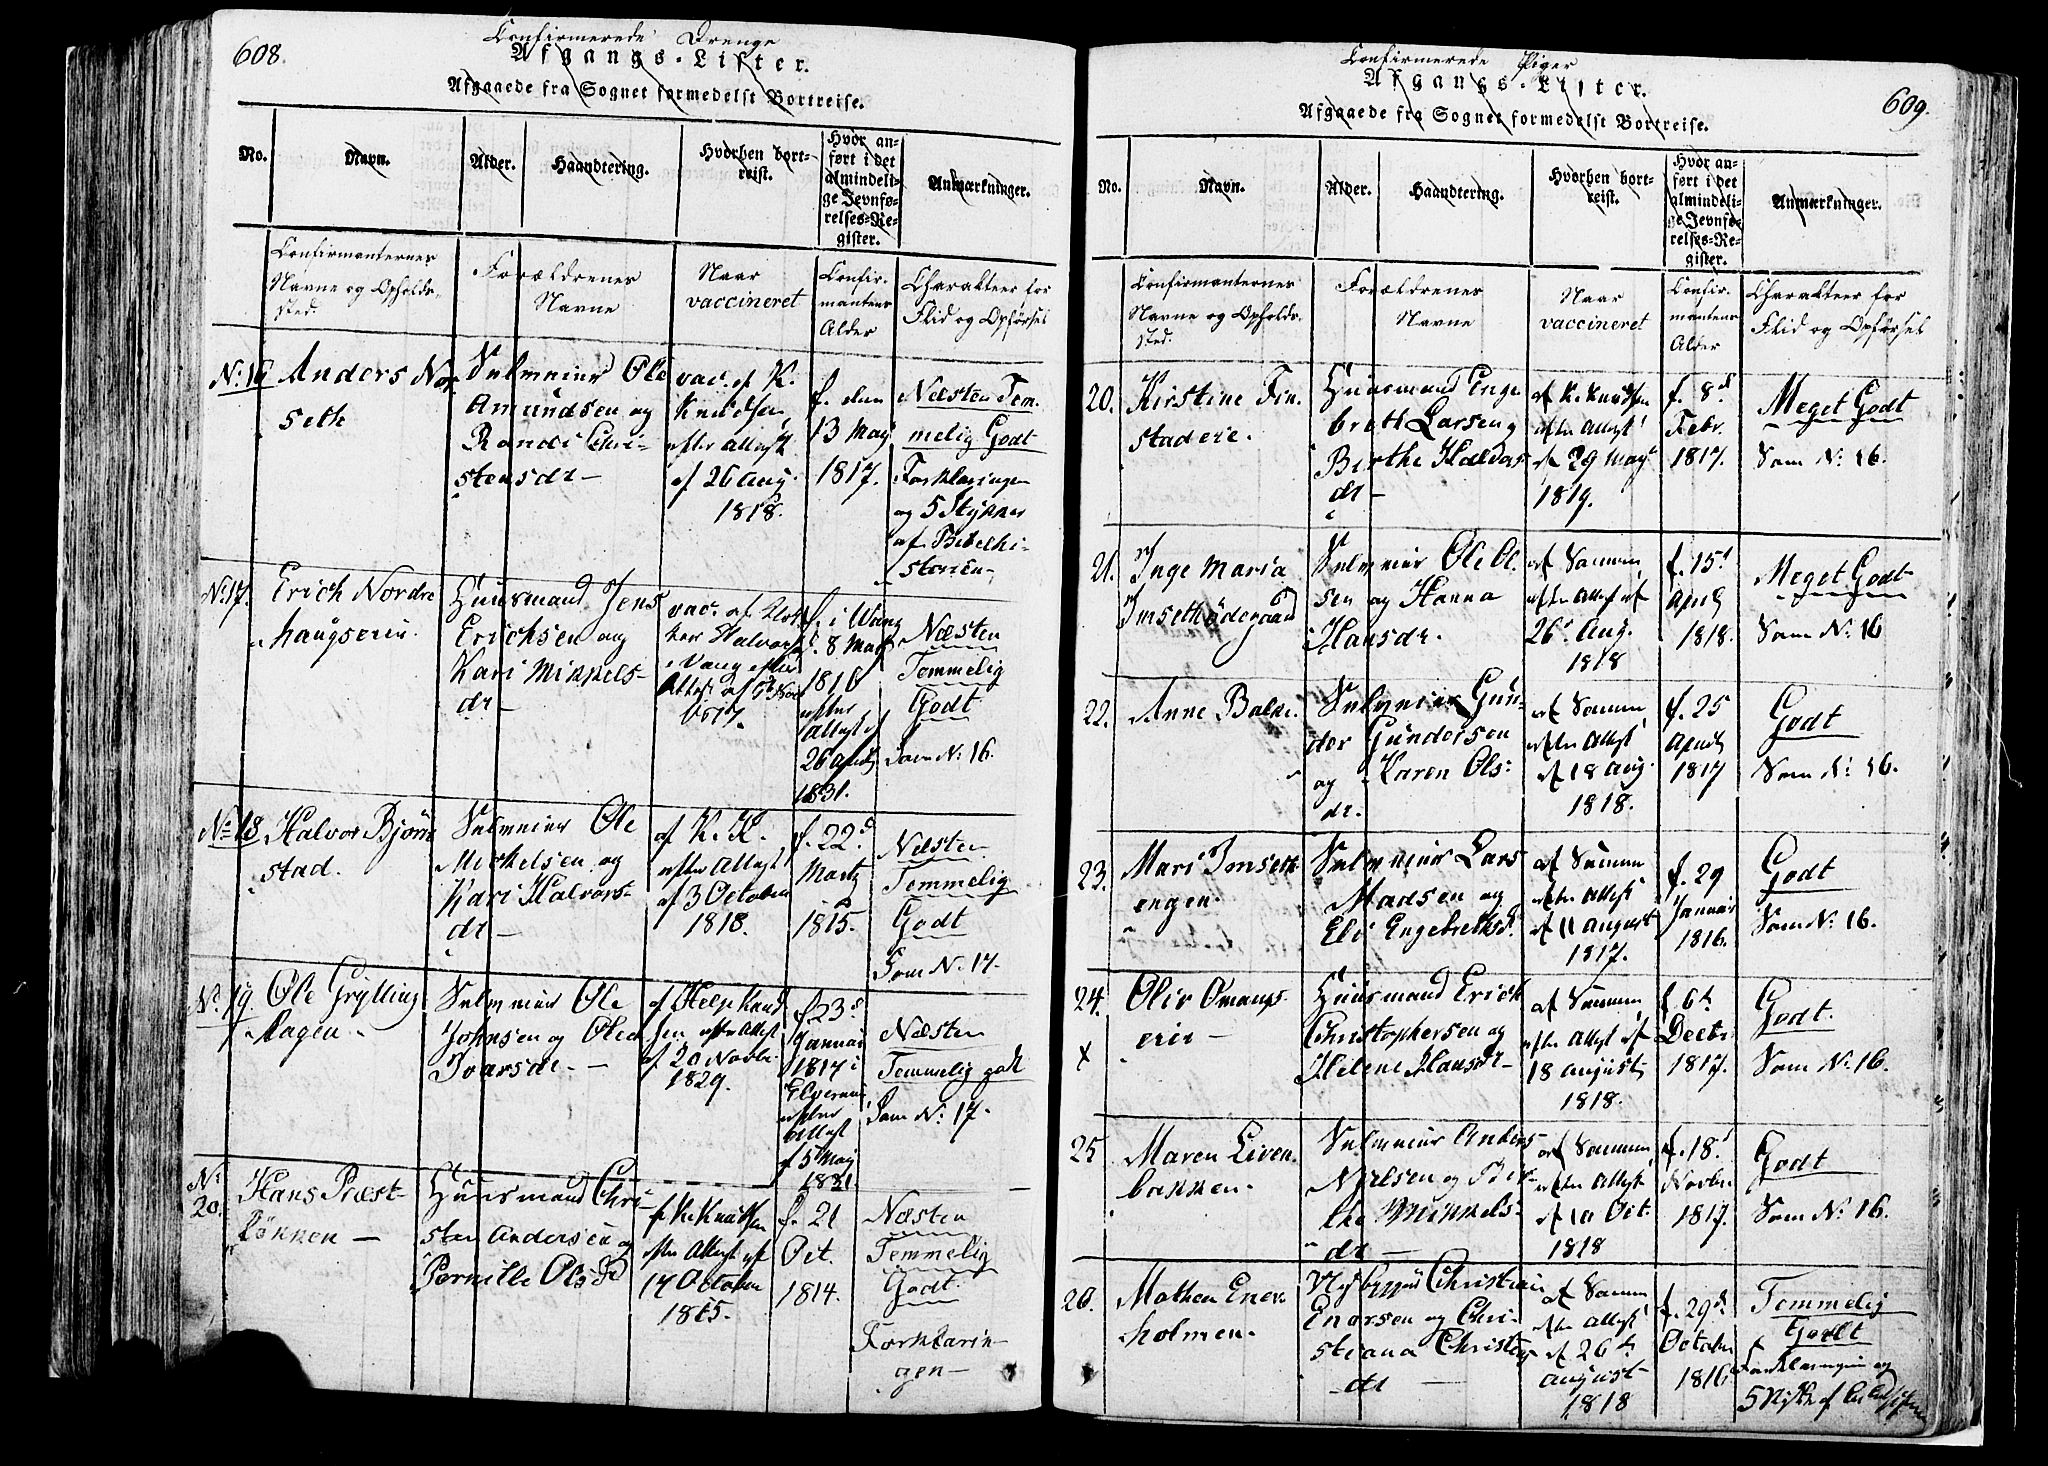 608.
Confirmerede Drenge
Afgangs-Lister.
Afgaaede fra Sognet formedelst Bortreise.
No.
Navn.
Alder.
Haandtering.
Hvorhen bort-
reist.
Hvor an-
ført i det
almindeli-
ge Jevnfø-
relses-Re-
gister.
Anmærkninger.
Confirmanternes
Navne og Opholds-
sted.
Forældrenes
Navne
Naar
vaccineret
Confir-
mantens
Alder
Charakteer for
Flid og Opførsel
No 16
Anders Nor
seth
Selveier Ole
Amundsen og
Randi Chri-
stensdr-
vac. af K.
Knudsen
efter Attest
af 26 Aug.
1818.
f. den
13 May
1817.
Næsten Tem-
melig Godt
Forklaringen
og 5 Stykker
af Bibelhi-
storien-
No 17.
Erich Nordre
haugseie
Huusmand Jens
Erichsen og
Kari Mikkels-
dr-
vac. af
Halvors
i Vang efter
Attest af
1817.
f. i Vang
8 Marts
1816
efter
Attest af
26 April
1831.
Næsten
Temmelig
Godt
Som No 16.
No 18
Halvor Bjørn
stad.
Selveier Ole
Mickelsen og
Kari Halvors-
dr-
af K. K.
efter Attest
af 3 October
1818.
f. 22d
Marts
1815.
Næsten
Temmelig
Godt
Som No 17.
No 19
Ole Grylling
hagen-
Selveier Ole
Johnsen og Olea
Ivarsdr.-
af Helje Knud
sen efter Attest
af 20 Novbr
1829.
f 23d
Januar
1817 i
Elverum
efter
Attest
af 5 May
1831.
Næsten
Temmelig godt
Som No 17.
No
20.
Hans Præst-
køkken-
Huusmand Chri-
sten Andersen og
Pernille Olsd
af K. Knudsen
efter Attest af
17 October
1815.
f. 21
Oct.
1814.
Næsten
Temmelig
Godt
Forklarin-
gen-
609.
Confirmerede Piger
Afgangs-Lister.
Afgaaede fra Sognet formedelst Bortreise.
No.
Navn.
Alder.
Haandtering.
Hvorhen bort-
reist.
Hvor an-
ført i det
almindeli-
ge Jevnfø-
relses-Re-
gister.
Anmærkninger.
Confirmanternes
Navne og Opholds-
sted.
Forældrenes
Navne
Naar
vaccineret
Confir-
mantens
Alder
Charakteer for
Flid og Opførsel
20.
Kirstine Fin-
stadeie.
Huusmand Enge
breth Larsen og
Birthe Haldors
dr-
af K. Knudsen
efter Attest
af 29 May
1819.
f. 8d
Febr.
1817.
Meget Godt
Som No 16.
21.
Inge Maria
Imsethødegaard
Selveier Ole Ol
sen og Hanna
Hansdr.
af Samme
efter Attest af
26d Aug.
1818
f. 15d
April
1818.
Meget Godt
Som No 16
22.
Anne Balke.
Selveier Gun-
der Gundersen
og Karen Ols-
dr.
af Samme
efter Attest
af 18 Aug.
1818.
f. 25
April
1817
Godt
Som No 16.
23.
Mari Imseth
engen.
Selveier Lars
Madsen og
Eli Engebrethsd.
af Samme
efter Attest
af 11 August
1817.
f. 29
Januar
1816.
Godt
Som No 16.
24.
x
Oliv Omangs-
eie-
Huusmand Erich
Christophersen og
Helene Hansdr-
af Samme
efter Attest af
18 August
1818.
f 6te
Decbr
1817.
Godt.
Som No 16.
25
Maren Liven
bakken.
Selveier Anders
Nielsen og Bir-
the Mikkels-
dr-
af Samme
efter Attest
af 10 Oct.
1818
f. 18d
Novbr
1817.
Godt
Som No 16.
26.
Mathea Ener
holmen.
Christian
Enersen og Chri-
stiana Christens
dr-
af Samme
efter Attest
af 26de
August
1818
f. 29d
October
1816
Temmelig
Godt
Forklaringen og
5 Stykker af